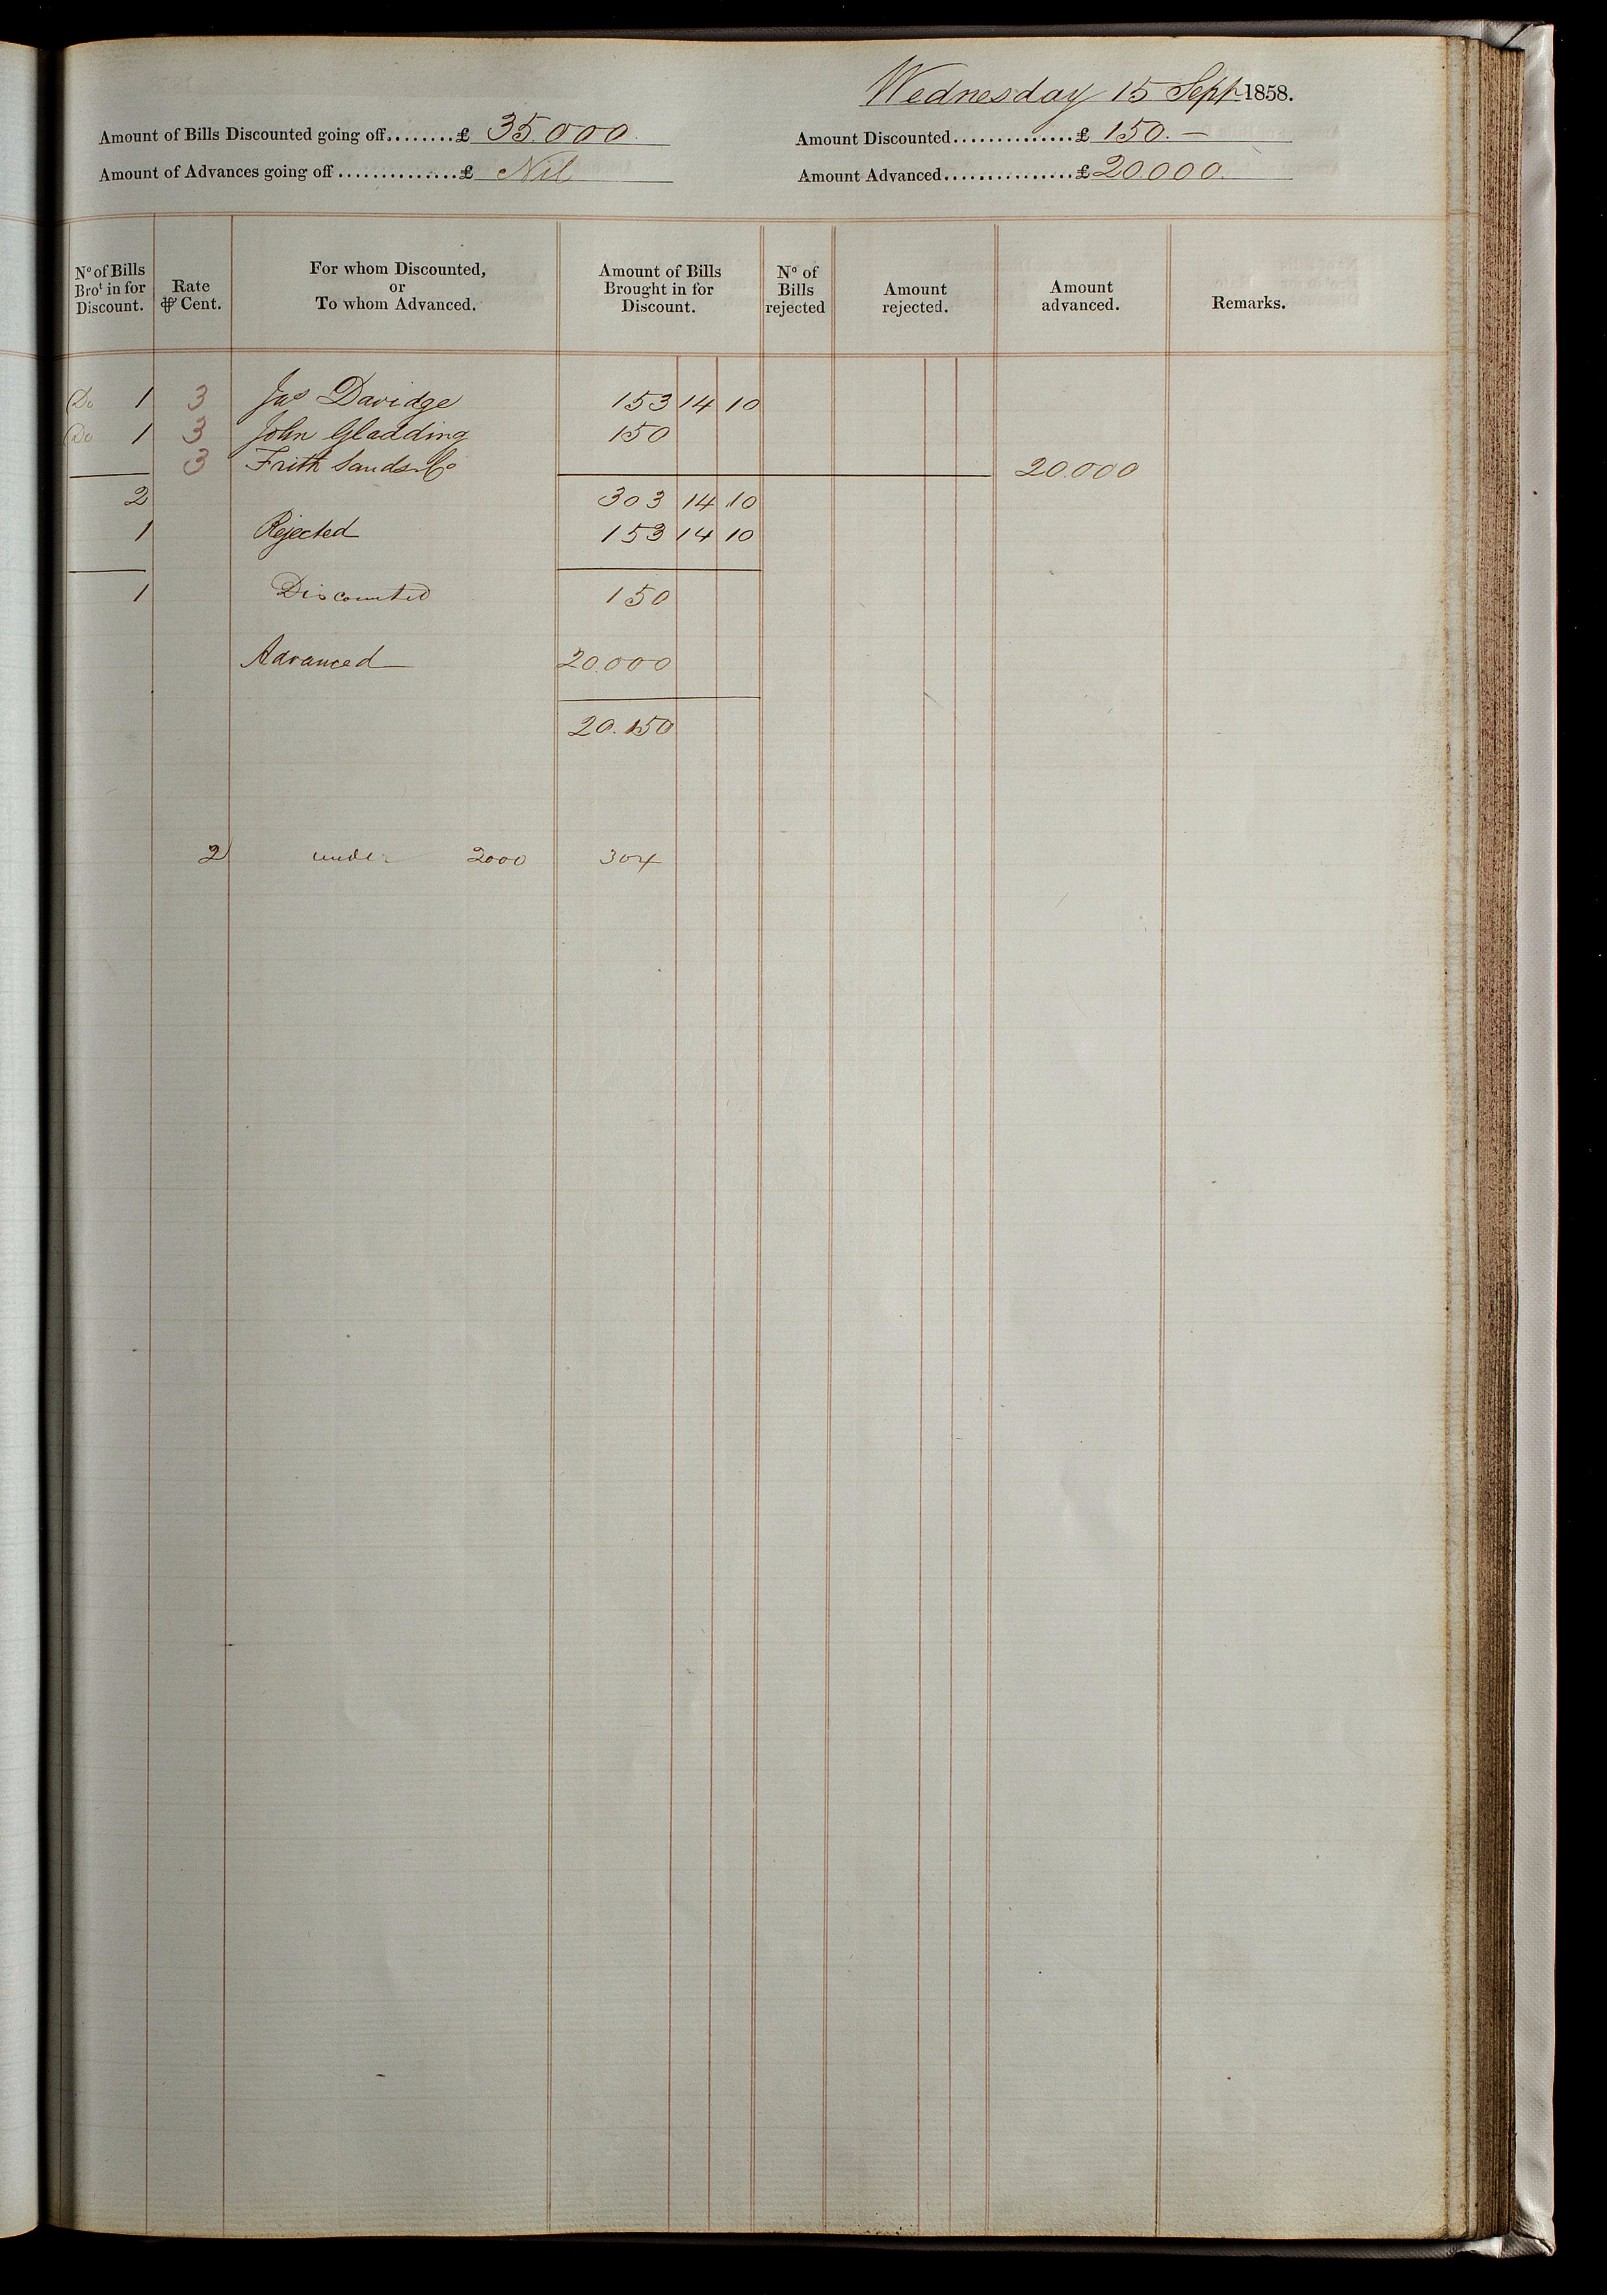 Wednesday 15 Sept 1858.
Amount of Bills Discounted going off........£ 35.000 Amount Discounted..............£ 150. —
Amount of Advances going off...............£ Nil Amount Advanced...............£ 20.000.
Nº of Bills Broᵗ in for Discount. Rate ⅌ Cent. For whom Discounted, or To whom Advanced. Amount of Bills Brought in for Discount. Nº of Bills rejected Amount rejected. Amount advanced. Remarks.
Do 1 3 Jas Davidge 153 14 10
Do 1 3 John Gladding 150
3 Frith Sands & Co 20.000
2 303 14 10
1 Rejected 153 14 10
1 Discounted 150
Advanced 20.000
20.150
2 under 2000 304